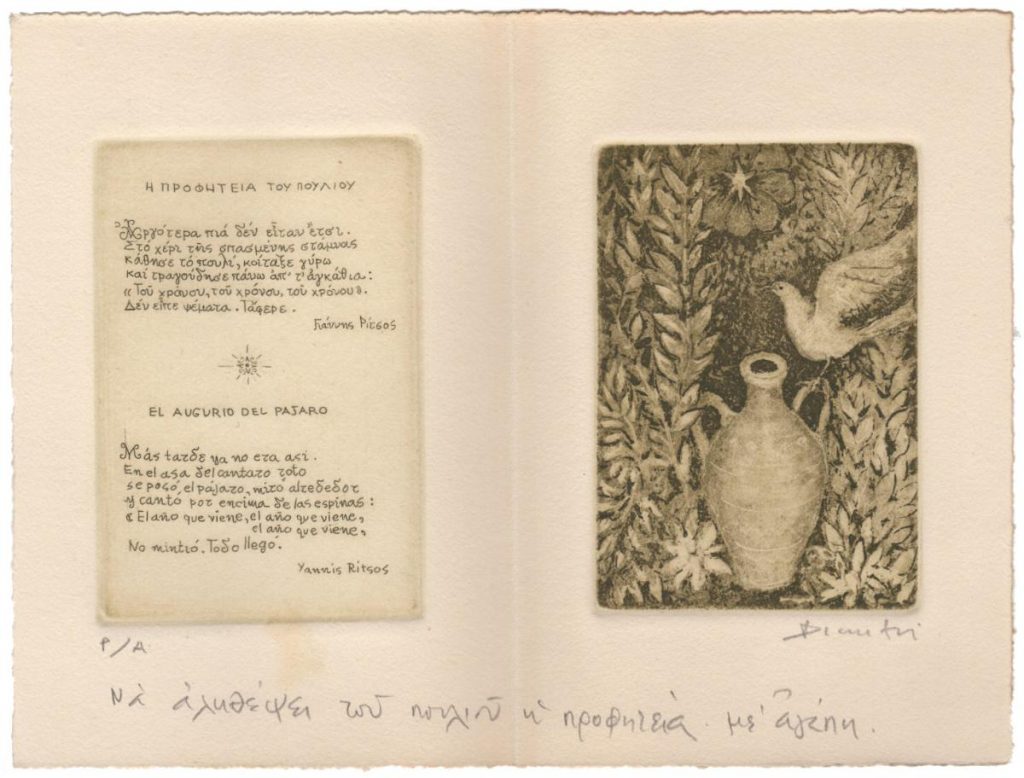 Η ΠΡΟΦΗΤΕΙΑ ΤΟΥ ΠΟΥΛΙΟΥ
Ἀργότερα πιά δέν εἶταν ἔτσι.
Στό χέρι τῆς σπασμένης στάμνας
κάθησε τό πουλί, κοίταξε γύρω
καί τραγούδησε πάνω ἀπ' τ' ἀγκάθια:
«Τοῦ χρόνου, τοῦ χρόνου, τοῦ χρόνου».
Δέν εἶπε ψέματα. Τἄφερε.
Γιάννης Ρίτσος
EL AUGURIO DEL PAJARO
Más tarde ya no era asi.
En el asa del cantaro roto
se posó el pájaro, miró alrededor
y cantó por encima de las espinas:
«El año que viene, el año que viene,
el año que viene,
No mintió. Todo llegó.
Yannis Ritsos
P/A
Dimitri
Νά ἀληθέψει τοῦ πουλιοῦ ἡ προφητεία. μέ ἀγάπη.